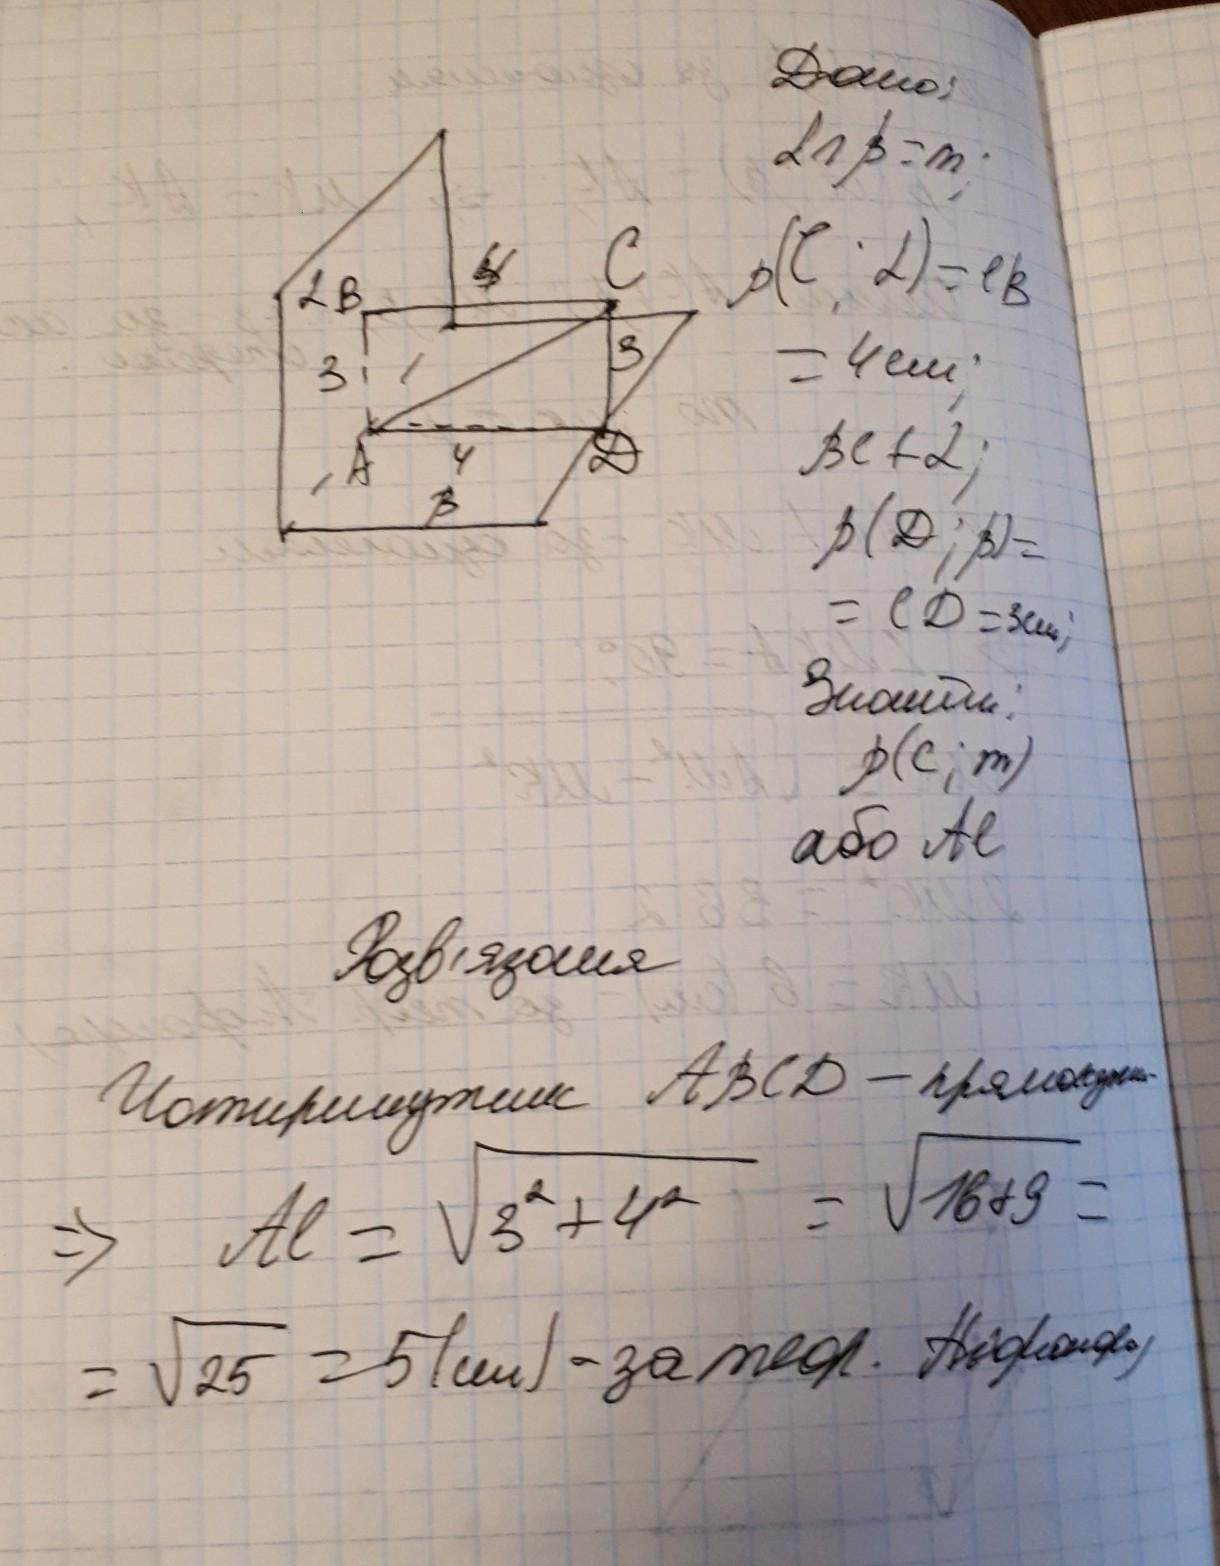 Дано:
α ∩ β = m;
ρ(C; α) = CB
= 4 см;
BC ⊥ α;
ρ(D; β) =
= CD = 3см;
Знайти:
ρ(C; m)
або AC
α B 4 C
3 3
A 4 D
β
Розв'язання
Чотирикутник ABCD — прямокутн.
=> AC = √3² + 4² = √16+9 =
= √25 = 5(см) - за теор. Піфагора